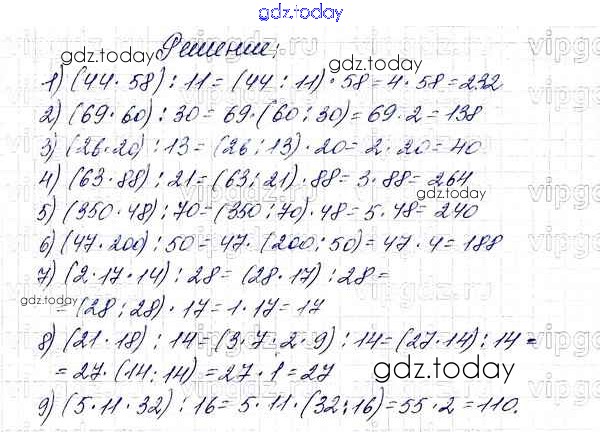 gdz.today
Решение:
gdz.today
1) (44 · 58) : 11 = (44 : 11) · 58 = 4 · 58 = 232
2) (69 · 60) : 30 = 69 · (60 : 30) = 69 · 2 = 138
3) (26 · 20) : 13 = (26 : 13) · 20 = 2 · 20 = 40
4) (63 · 88) : 21 = (63 : 21) · 88 = 3 · 88 = 264
gdz.today
5) (350 · 48) : 70 = (350 : 70) · 48 = 5 · 48 = 240
6) (47 · 200) : 50 = 47 · (200 : 50) = 47 · 4 = 188
7) (2 · 17 · 14) : 28 = (28 · 17) : 28 =
gdz.today
= (28 : 28) · 17 = 1 · 17 = 17
8) (21 · 18) : 14 = (3 · 7 · 2 · 9) : 14 = (27 · 14) : 14 =
= 27 · (14 : 14) = 27 · 1 = 27
gdz.today
9) (5 · 11 · 32) : 16 = 5 · 11 · (32 : 16) = 55 · 2 = 110.